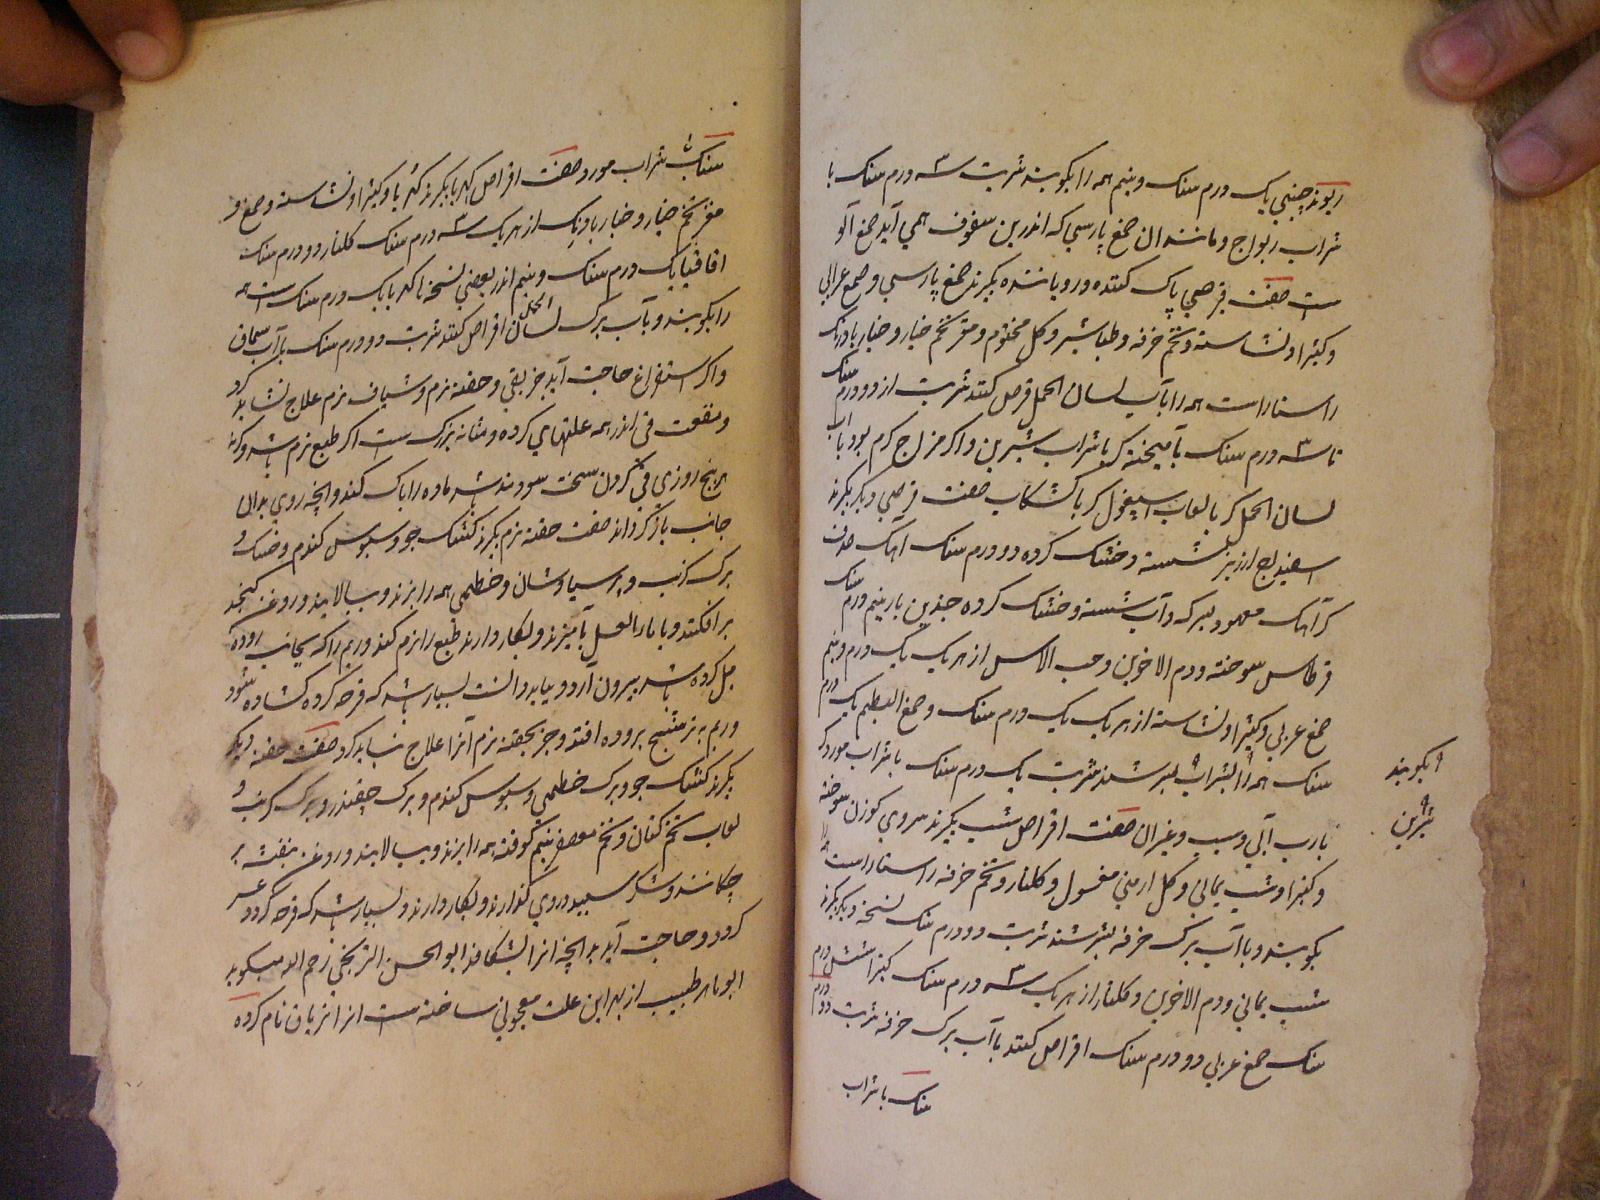 ریوند چینی یک درم سنک و نیم همه را بکوبند شربت سه درم سنک با
شراب ریواج و مانند ان صمغ پارسی که اندرین سفوف همی آید صمغ آلو
ست صفت قرصی پاک کننده و رویاننده بکیرند صمغ پارسی و صمغ عرابی
و کتیرا و نشاسته و تخم خرفه و طباشیر و کل مختوم و مغز تخم خیار و خیار بادرنک
راستاراست همه را بآب لسان الحمل قرص کنند شربت از دو درم سنک
تا سه درم سنک بآمیخته کر با شراب شیرین و اکر مزاج کرم بود باب
لسان الحمل کر با لعاب اسپغول کر با کشکاب صفت قرصی دیکر بکیرند
اسفیداج ارزیز شسته و خشک کرده دو درم سنک آهک صدف
کر آهک معهود بسرکه و آب شسته و خشک کرده چندین بار نیم درم سنک
قرطاس سوخته و دم الاخوین و حب الاس از هر یک یک درم و نیم
صمغ عربی و کتیرا و نشاسته از هر یک یک درم سنک و صمغ البطم یک درم
سنک همه را بشراب بسرشند شربت یک درم سنک با شراب مورد کر
بارب آبی و سیب و غیر ان صفت اقراص شب بکیرند سروی کوزن سوخته
و کتیرا و شب یمانی و کل ارمنی مغسول و کلنار و تخم خرفه راستاراست
بکوبند و با آب برک خرفه بسرشند شربت دو درم سنک نسخه دیکر بکیرند
شب یمانی و دم الاخوین و کلنار از هر یک سه درم سنک کتیرا شش درم
سنک صمغ عربی دو درم سنک اقراص کنند با آب برک خرفه شربت دو درم
سنک با شراب
بکوبند
شیرین
سنک شراب مورد صفت اقراص کهربا بکیرند کهربا و کتیرا و نشاسته و صمغ و
مغز تخم خیار و خیار بادرنک از هر یک سه درم سنک کلنار دو درم سنک
اقاقیا یک درم سنک و نیم اندر بعضی نسخه‌ها کهربا یک درم سنک است همه
را بکوبند و بآب برک لسان الحمل اقراص کنند شربت دو درم سنک با آب سماق
و اکر استفراغ حاجت آید جز بقی و حقنه نرم و شیاف نرم علاج نشاید کرد
و منفعت قی اندر همه علتهای کرده و مثانه بزرک ست اکر طبع نرم باشد و کرنه
هر پنج روزی قی کردن سخت سودمند باشد ماده را پاک کند و انچه روی بدان
جانب باز کرداند صفت حقنه نرم بکیرند کشک جو و سبوس کندم و خسک و
برک کرنب و پرسیاوشان و خطمی همه را بپزند و بپالایند و روغن کنجد
برافکنند و با ماء العسل بآمیزند و بکار دارند طبع را نرم کند و ریم را که بجانب روده
میل کرده باشد بیرون آرد و بباید دانست بسیار باشد که قرحه کرده کشاده شود
و ریم بر تشنج بروده افتد و جز بحقنه نرم آنرا علاج نشاید کرد صفت حقنه دیکر
بکیرند کشک جو و برک خطمی و سبوس کندم و برک چقندر و برک کرنب و
لعاب تخم کتان و تخم معصفر نیم کوفته همه را بپزند و بپالایند و روغن بنفشه بر
چکانند و شکر سپید در وی کدازند و بکار دارند و بسیار باشد که قرحه کرده
کردد و حاجت آید بدانچه انرا بشکافد ابوالحسن الترنجی رحم الله میکوید
ابوماهر طبیب از بهر این علت معجونی ساخته ست انرا تریاق نام کرده